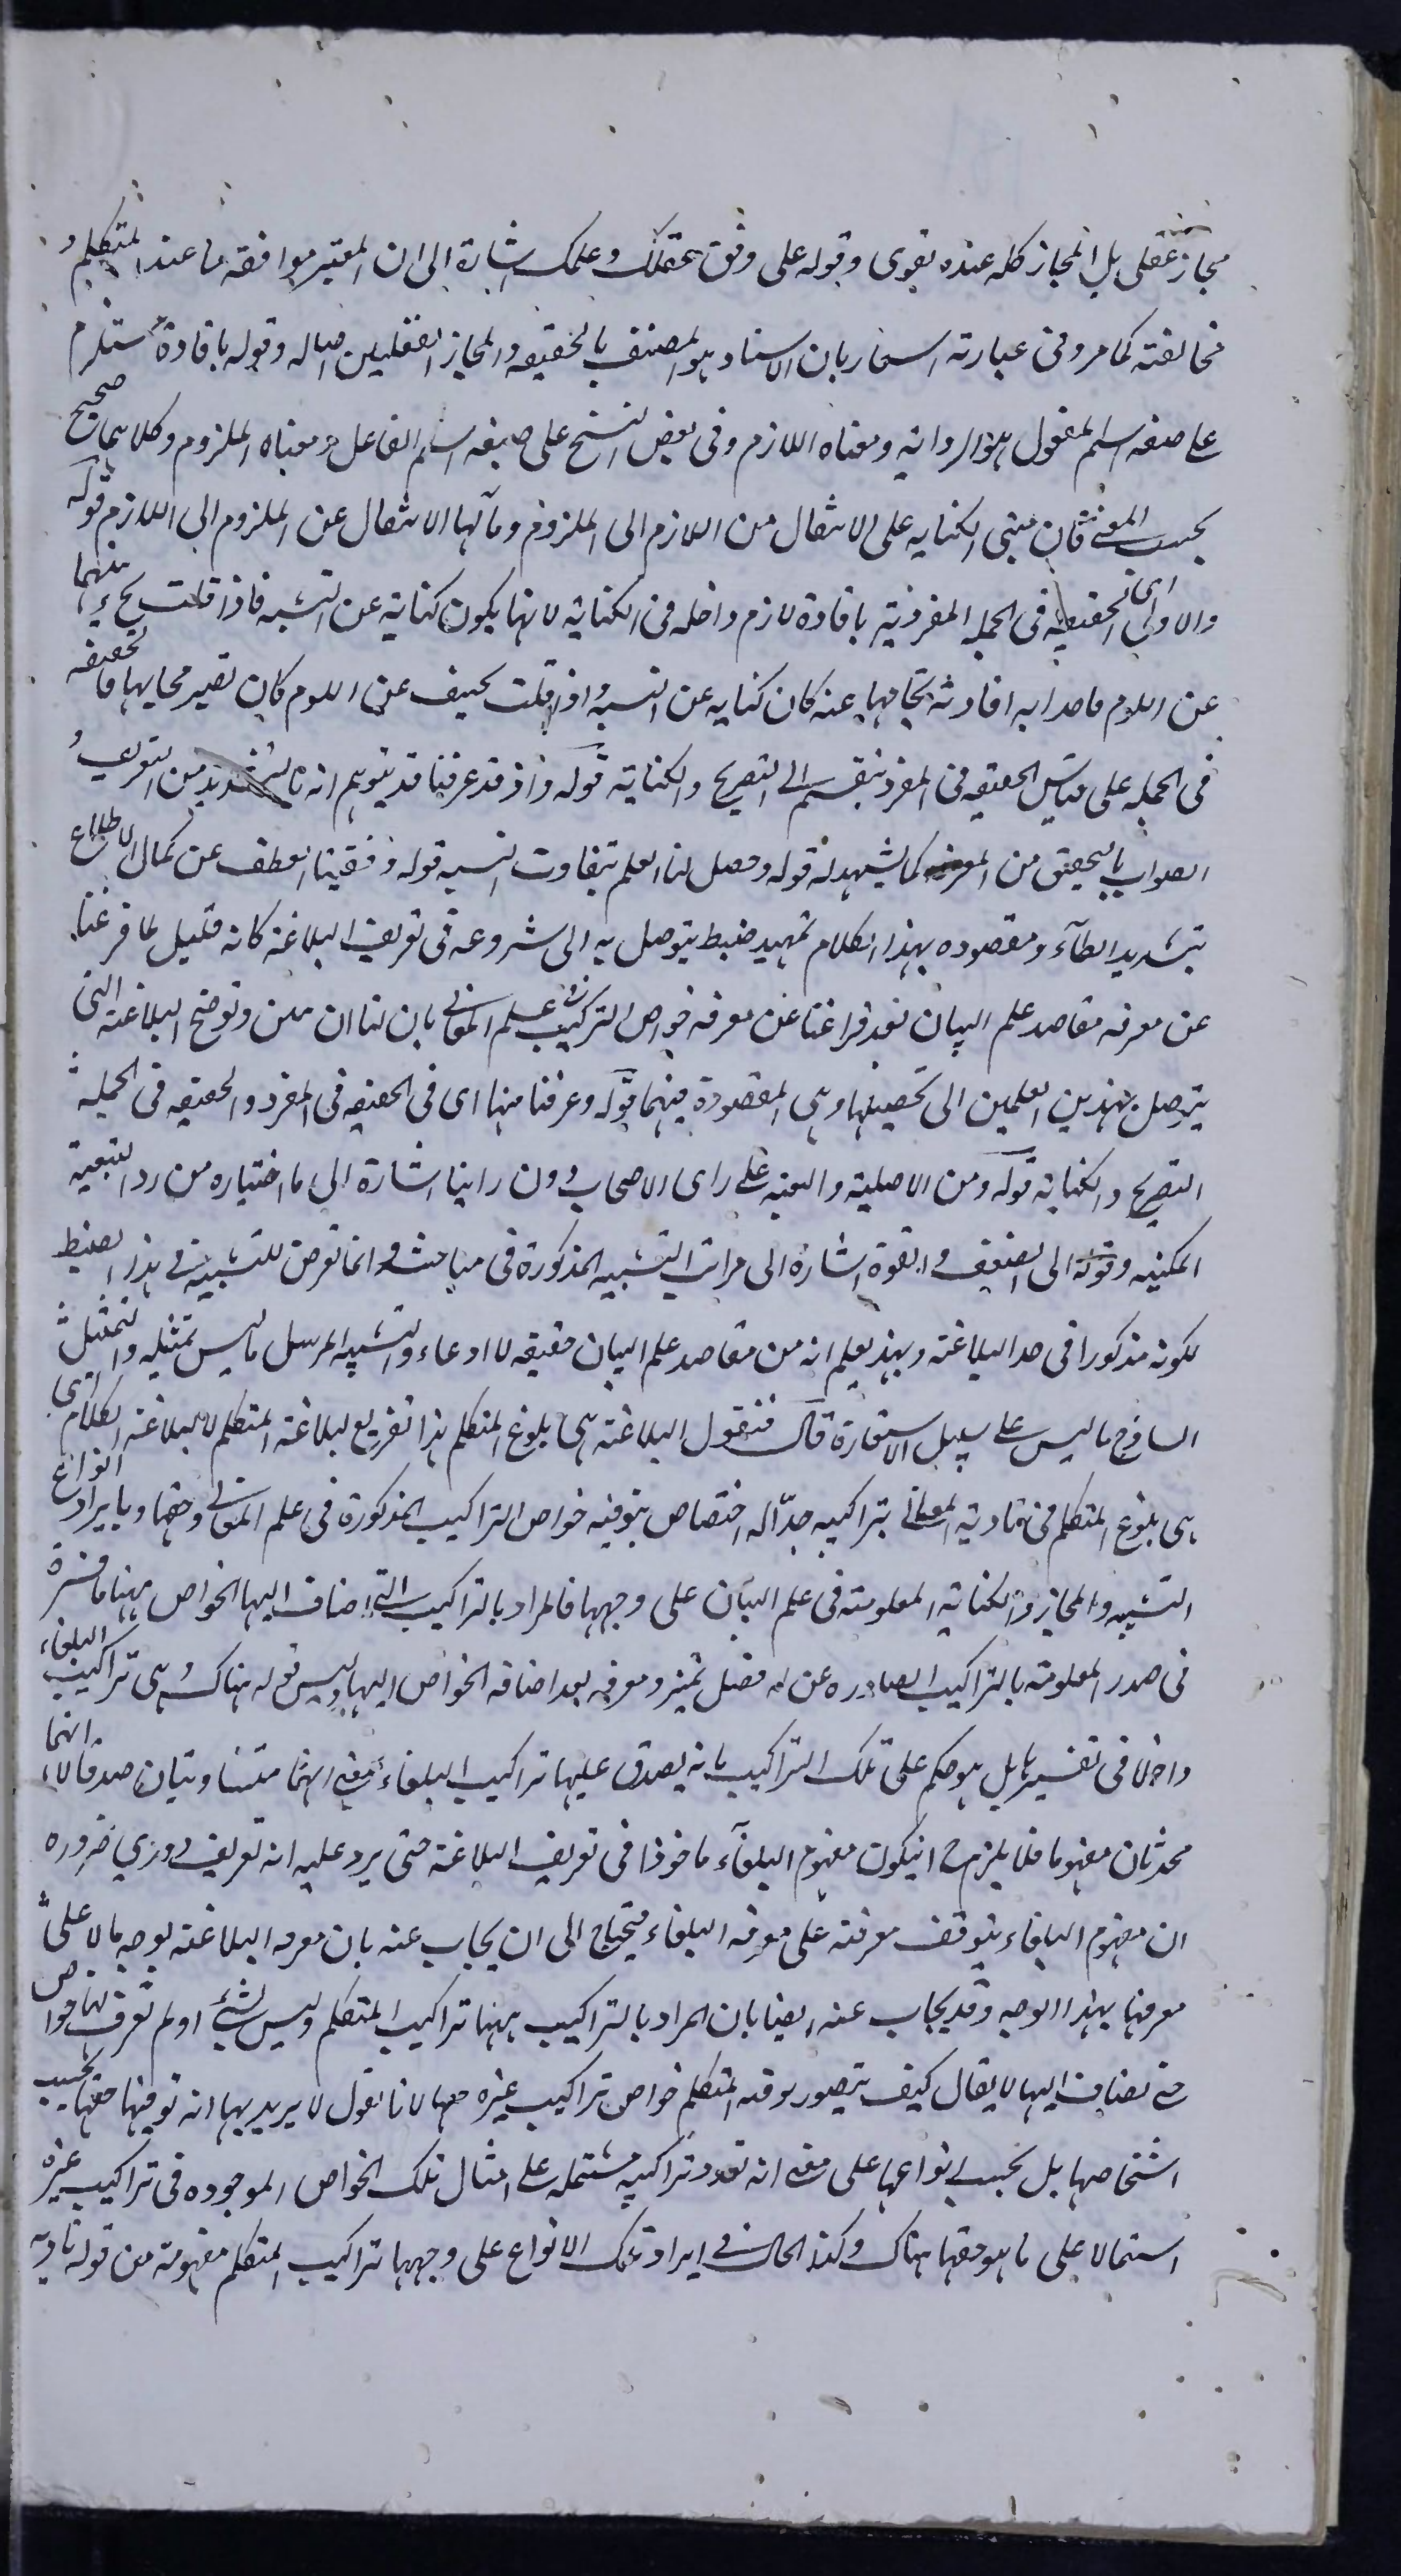 مجاز عقلى بل المجاز كله عنده لغوى وقوله على وفق عقلك وعلمك اشارة الى ان المعتبر موافقة ما عند المتكلم و
مخالفته كما مر وفى عبارته اشعار بان الاسناد هو المتصف بالحقيقة والمجاز العقليين اصالة وقوله بافادة مستلزم
على صيغة اسم المفعول هو الرواية ومعناه اللازم وفى بعض النسخ على صيغة اسم الفاعل ومعناه الملزوم وكلاهما صحيح
بحسب المعنى فان مبنى الكناية على الانتقال من اللازم الى الملزوم ومآلها الانتقال عن الملزوم الى اللازم قوله
والاولى اى الحقيقية فى الجملة المقرونة بافادة لازم داخلة فى الكناية لانها يكون كناية عن النسبة فاذا قلت
عن اللوم قاصدا به افادة عنه كان كناية عن النسبة واذا قلت يحيف عن اللوم كان فالحقيقة
فى الجملة على قياس الحقيقة فى المفرد ينقسم الى التصريح والكناية قوله واذ قد عرفنا قد يتوهم انه بالتشديد من التعريف و
الصواب بالتخفيف من المعرفة كما يشهد له قوله وحصل لنا العلم بتفاوت التشبيه قوله وقفينا العطف عن كمال الاطلاع
بتشديد الطآء ومقصوده بهذا الكلام تمهيد ضبط يتوصل به الى شروعه فى تعريف البلاغة كانه قيل لما فرغنا
عن معرفة مقاصد علم البيان بعد فراغنا عن معرفة خواص التركيب فى علم المعانى بان لنا ان نبين ونوضح البلاغة التى
يتوصل بهذين العلمين الى تحصيلها وهى المقصودة منهما قوله وعرفنا منها اى فى الحقيقة فى المفرد والحقيقة فى الجملة
التصريح والكناية قوله ومن الاصلية والتبعية على راى الاصحاب دون راينا اشارة الى ما اختاره من رد التبعية
المكنية وقوله الى الضعف والقوة اشارة الى مراتب التشبيه المذكورة فى مباحثه وانما تعرض للتشبيه فى هذا الضبط
لكونه مذكورا فى حد البلاغة وبهذا يعلم انه من مقاصد علم البيان حقيقة لا ادعاء والتشبيه المرسل ما ليس تمثيله والتمثيل
الساذج ما ليس على سبيل الاستعارة قال فنقول البلاغة هى بلوغ المتكلم هذا تفريع لبلاغة المتكلم لا لبلاغة الكلام اى
هى بلوغ المتكلم فى تادية المعانى بتراكيبه حدّا له اختصاص بتوفية خواص التراكيب المذكورة فى علم المعانى حقها وبايراد انواع
التشبيه والمجاز والكناية المعلومة فى علم البيان على وجهها فالمراد بالتراكيب التى اضاف اليها الخواص ههنا ما فسره
فى صدر المعلومة بالتراكيب الصادرة عن له فضل تميز ومعرفة بعد اضافة الخواص اليها وليس قوله هناك وهى تراكيب البلغاء
داخلا فى تفسيرها بل هو حكم على تلك التراكيب بانه يصدق عليها تراكيب البلغاء بمعنى انهما متساويتان صدقا لا انهما
متحدتان مفهوما فلا يلزم ح ان يكون مفهوم البلغآء ماخوذا فى تعريف البلاغة حتى يرد عليه انه تعريف دورى ضرورة
ان مفهوم البلغاء يتوقف معرفته على معرفة البلغاء فيحتاج الى ان يجاب عنه بان معرفة البلاغة بوجه ما لا على
معرفتها بهذا الوجه وقد يجاب عنه ايضا بان المراد بالتراكيب ههنا تراكيب المتكلم وليس بشئ اولم تعرف لها خواص
حتى تضاف اليها لا يقال كيف يتصور توفية المتكلم خواص تراكيب غيره حقها لانا نقول لا يريد بها انه توفيها حقها بحسب
اشخاصها بل بحسب انواعها على معنى انه تورد تراكيبه مشتملة على امثال تلك الخواص الموجودة فى تراكيب غيره
اشتمالا على ما هو حقها هناك وكذا الحال فى ايراد تلك الانواع على وجهها تراكيب المتكلم مفهومة من قوله تادية